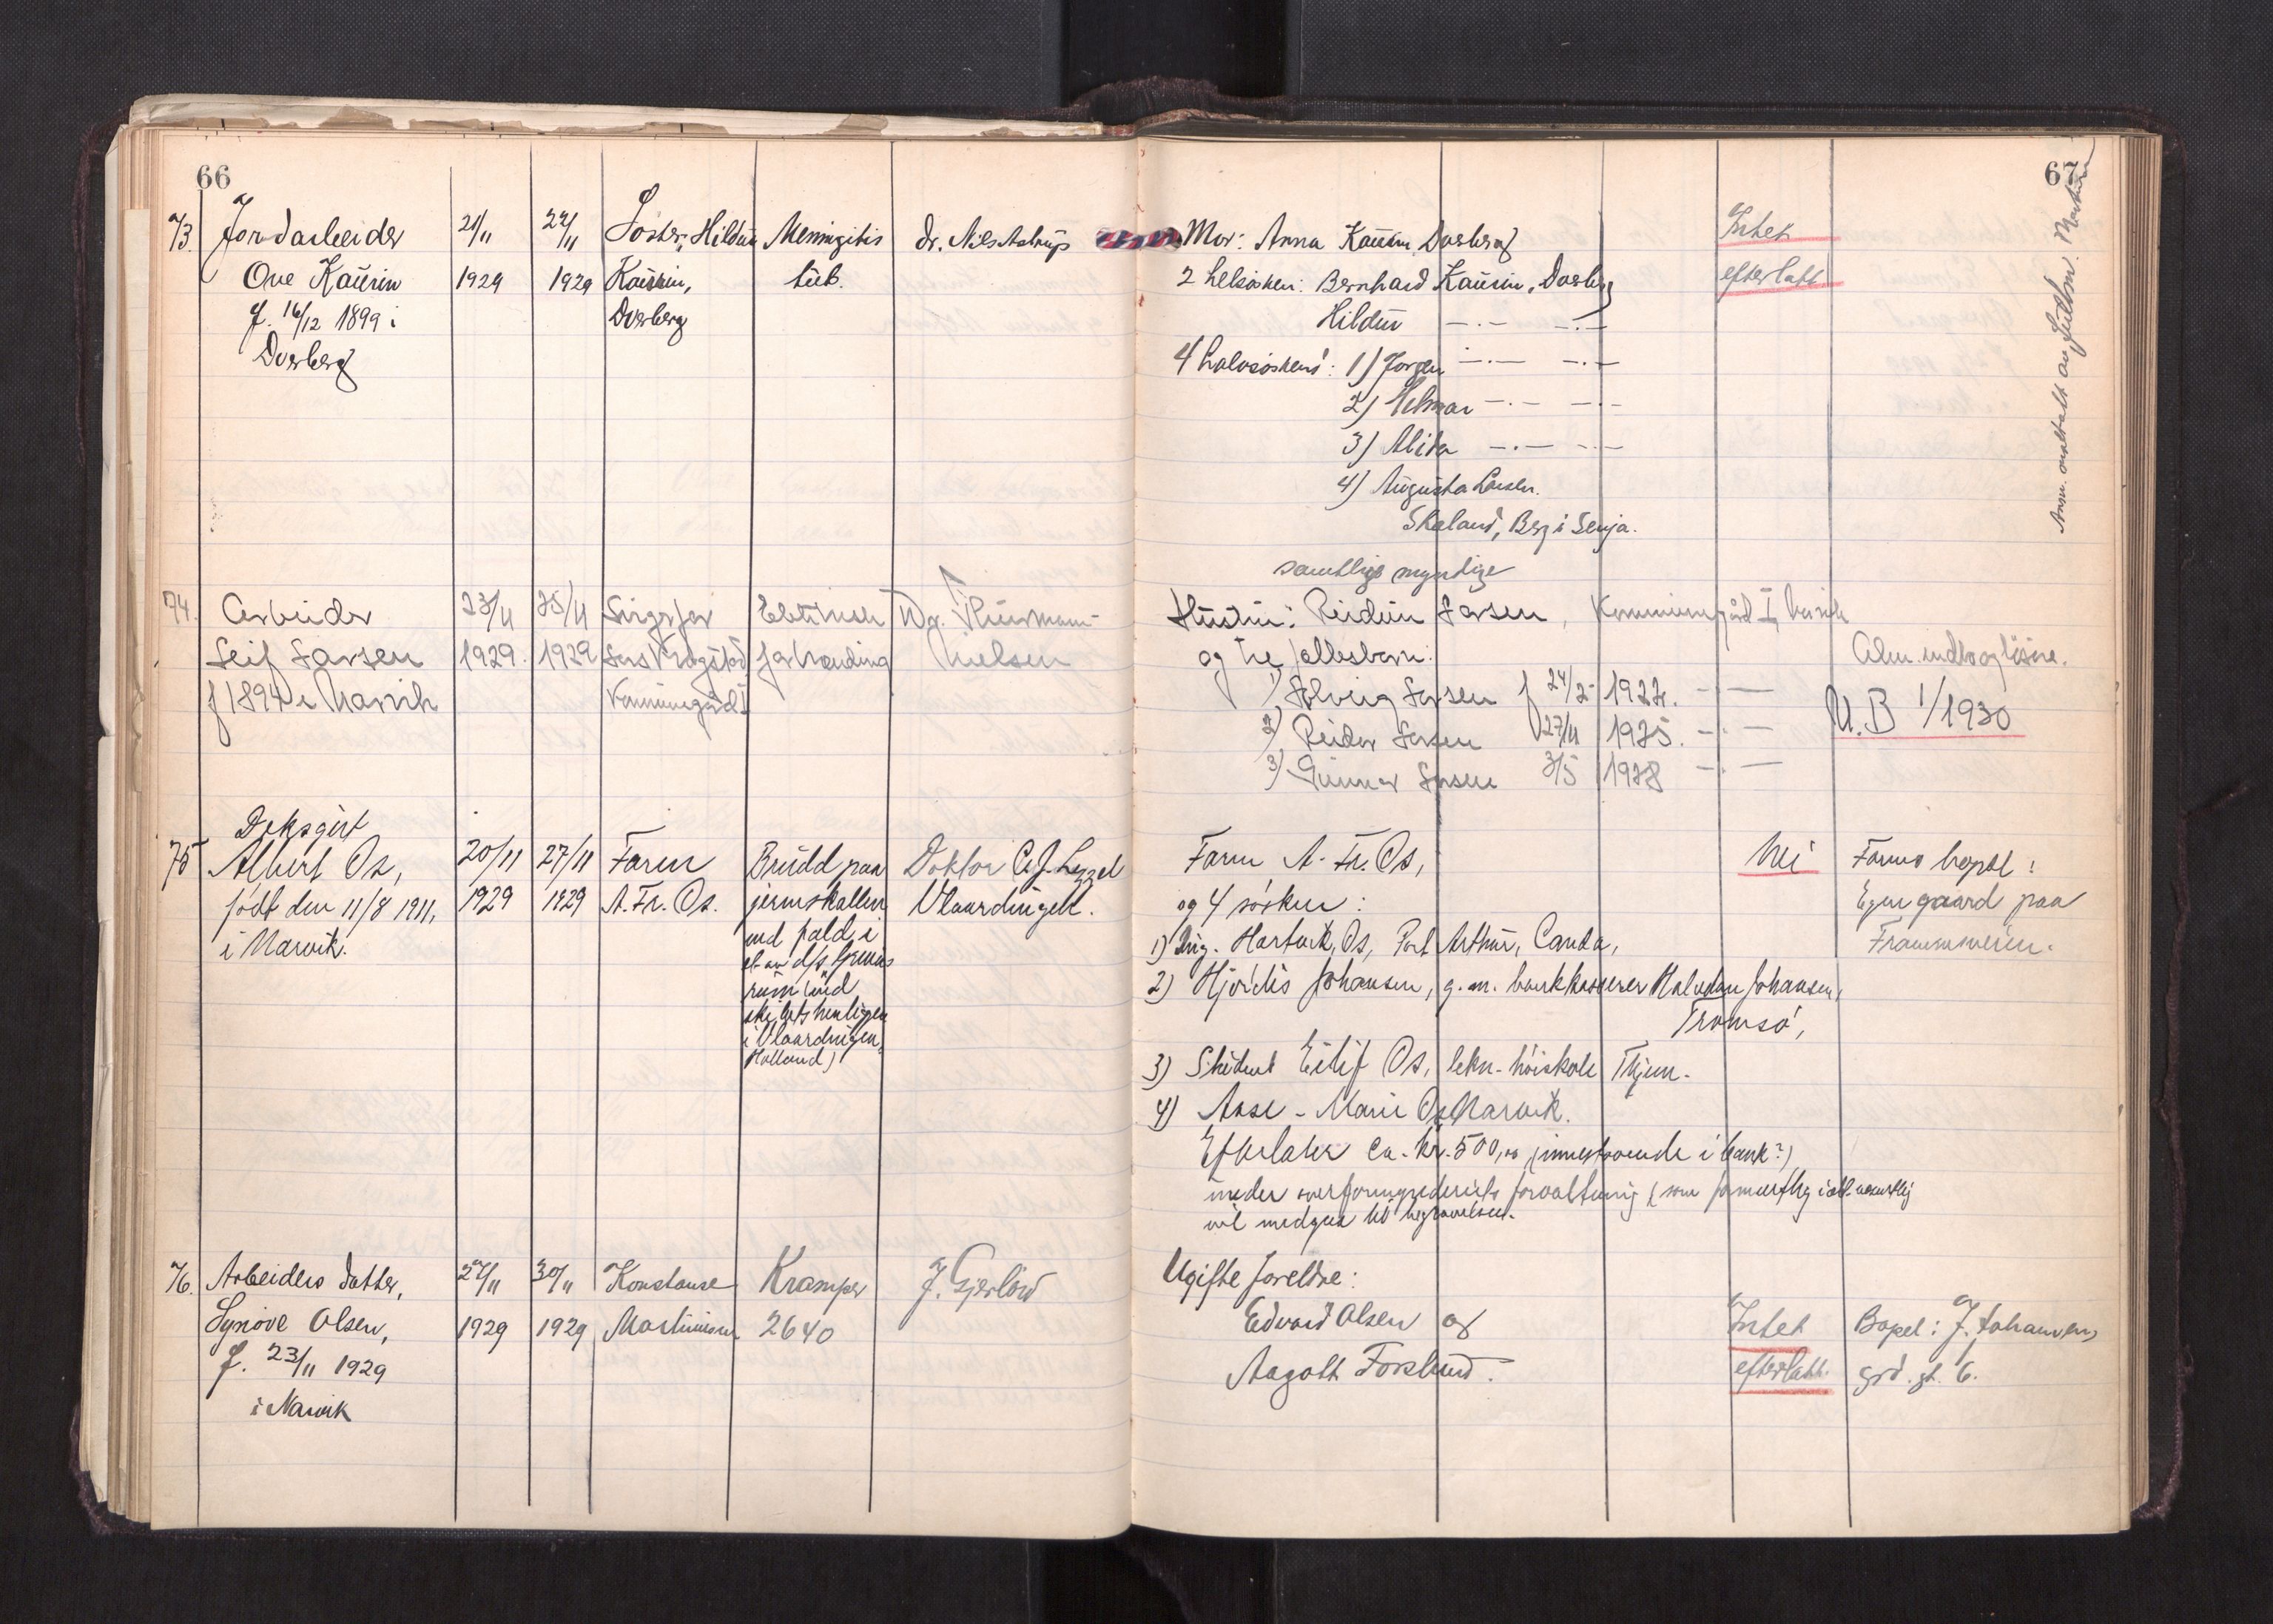 66
73. Jordarbeider 21/11 22/11 Søster, Hildur Meningitis dr. Nils Astrup
Ove Kaurin 1929 1929 Kaurin, tub.
f. 16/12 1899 i Dverberg
Dverberg
74. Arbeider 23/11 25/11
Leif Larsen 1929. 1929 Lars Krogstad forbrænding Nielsen
f 1894 i Narvik Kommunegård I
Dæksgut
75 Albert Os, 20/11 27/11 Faren Brudd paa Doktor
født den 11/8 1911, 1929 1929 A. Fr. Os. jerneskallen Vlaardingen.
i Narvik. ved fald i
rum (ved
i Vlaardingen,
Holland)
76. Arbeiders datter, 27/11 30/11 Konstanse Kramper J. Gjerløw
Synøve Olsen, 1929 1929 Martinisen 2640
f. 23/11 1929
i Narvik
67
Mor: Anna Kaurin, Dverberg Intet
2 helsøsken: Bernhard Kaurin, Dverberg efterlatt
Hildur —.— —.—
4 halvsøsken: 1) Jørgen —.— —.—
2) Helmar —.— —.—
3) Alida —.— —.—
4) Augusta Larsen.
Skaland, Berg i Senja.
samtlige myndige
Hustru: Reidun Larsen, Kommunegård I, Narvik
og tre fellesbarn: Alm. indbo og løsøre.
1) Solveig Larsen f 24/2 1922. —.—
U.B 1/1930
2) Reidar Larsen 27/11 1925. —.—
3) Gunnar Larsen 3/5 1928 —.—
Faren A. Fr. Os, Nei Farens bopæl:
og 4 søsken: Egen gaard paa
1) Ing. Hartvik Os, Port Arthur, Canda, Framnesveien.
2) Hjørdis Johansen, g. m. bankkasserer Halvdan Johansen,
Tromsø,
3) Student Eilif Os, tekn. høiskole Thjem.
4) Aase-Marie Os Narvik.
Efterlater ca. kr. 500,00 (innestaaende i bank?)
under overformynderiets forvaltning (som
vil medgaa til begravelsen.
Ugifte foreldre:
Edvard Olsen og Intet Bopel: J. Johansens
Aagott Forslund. efterlatt. grd. gt. 6.